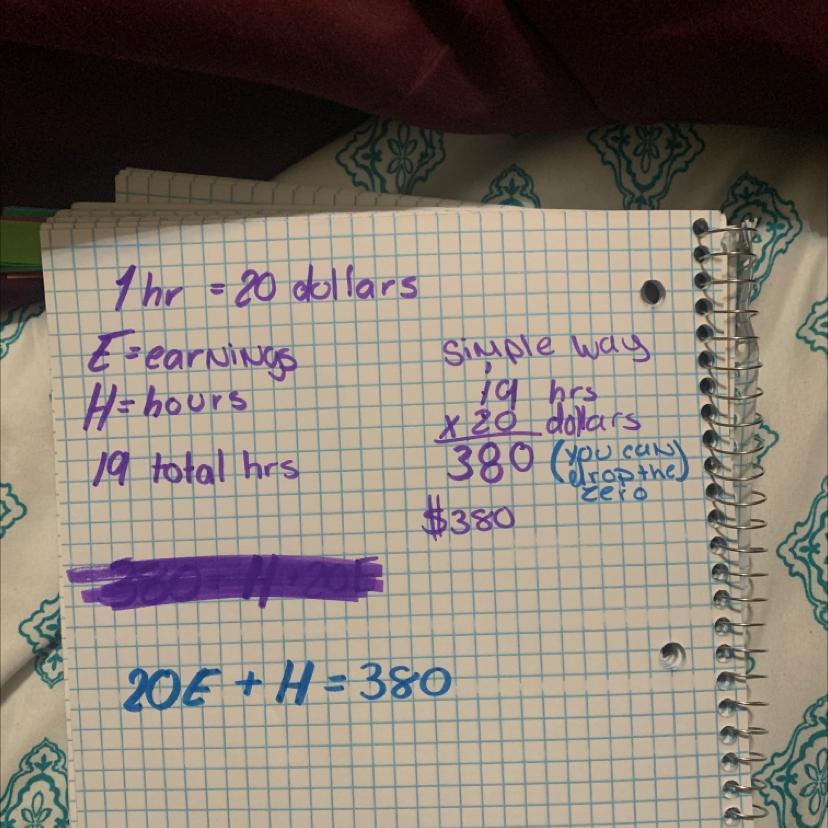 1 hr = 20 dollars
E = earnings
H = hours
19 total hrs
simple way
19 hrs
x 20 dollars
380 (you can drop the zero)
$380
20E + H = 380